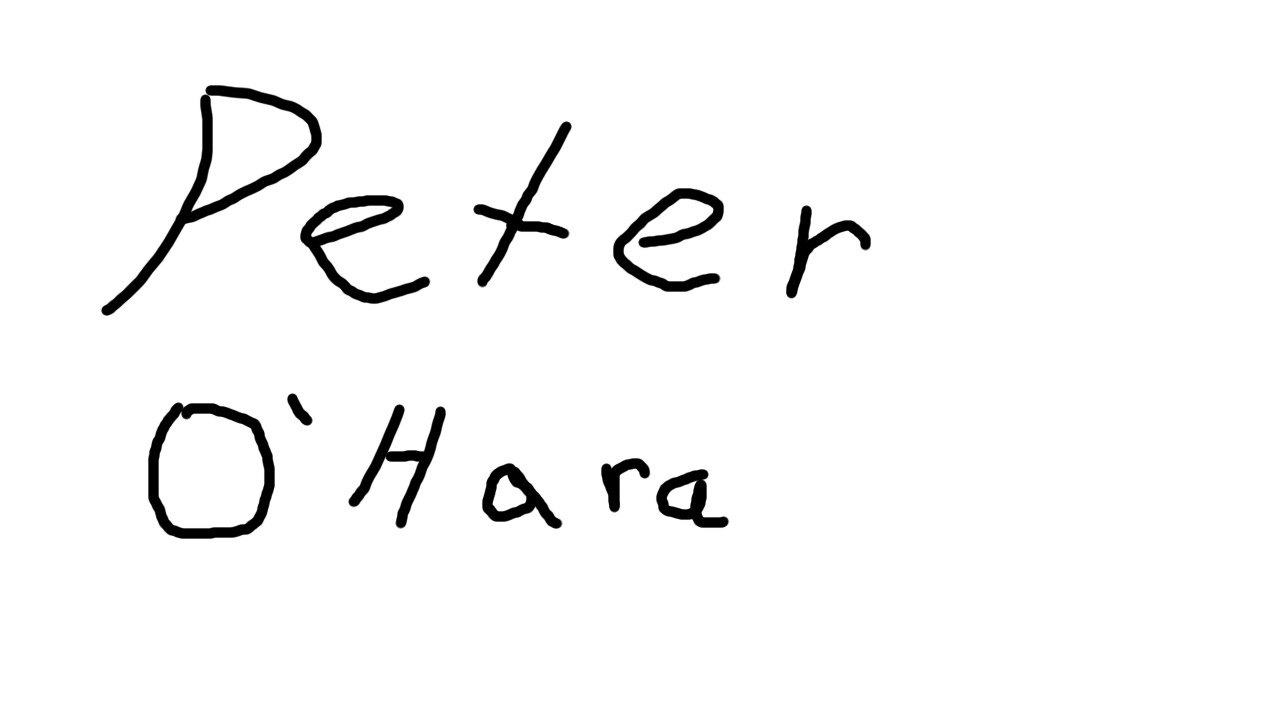 Peter
O`Hara